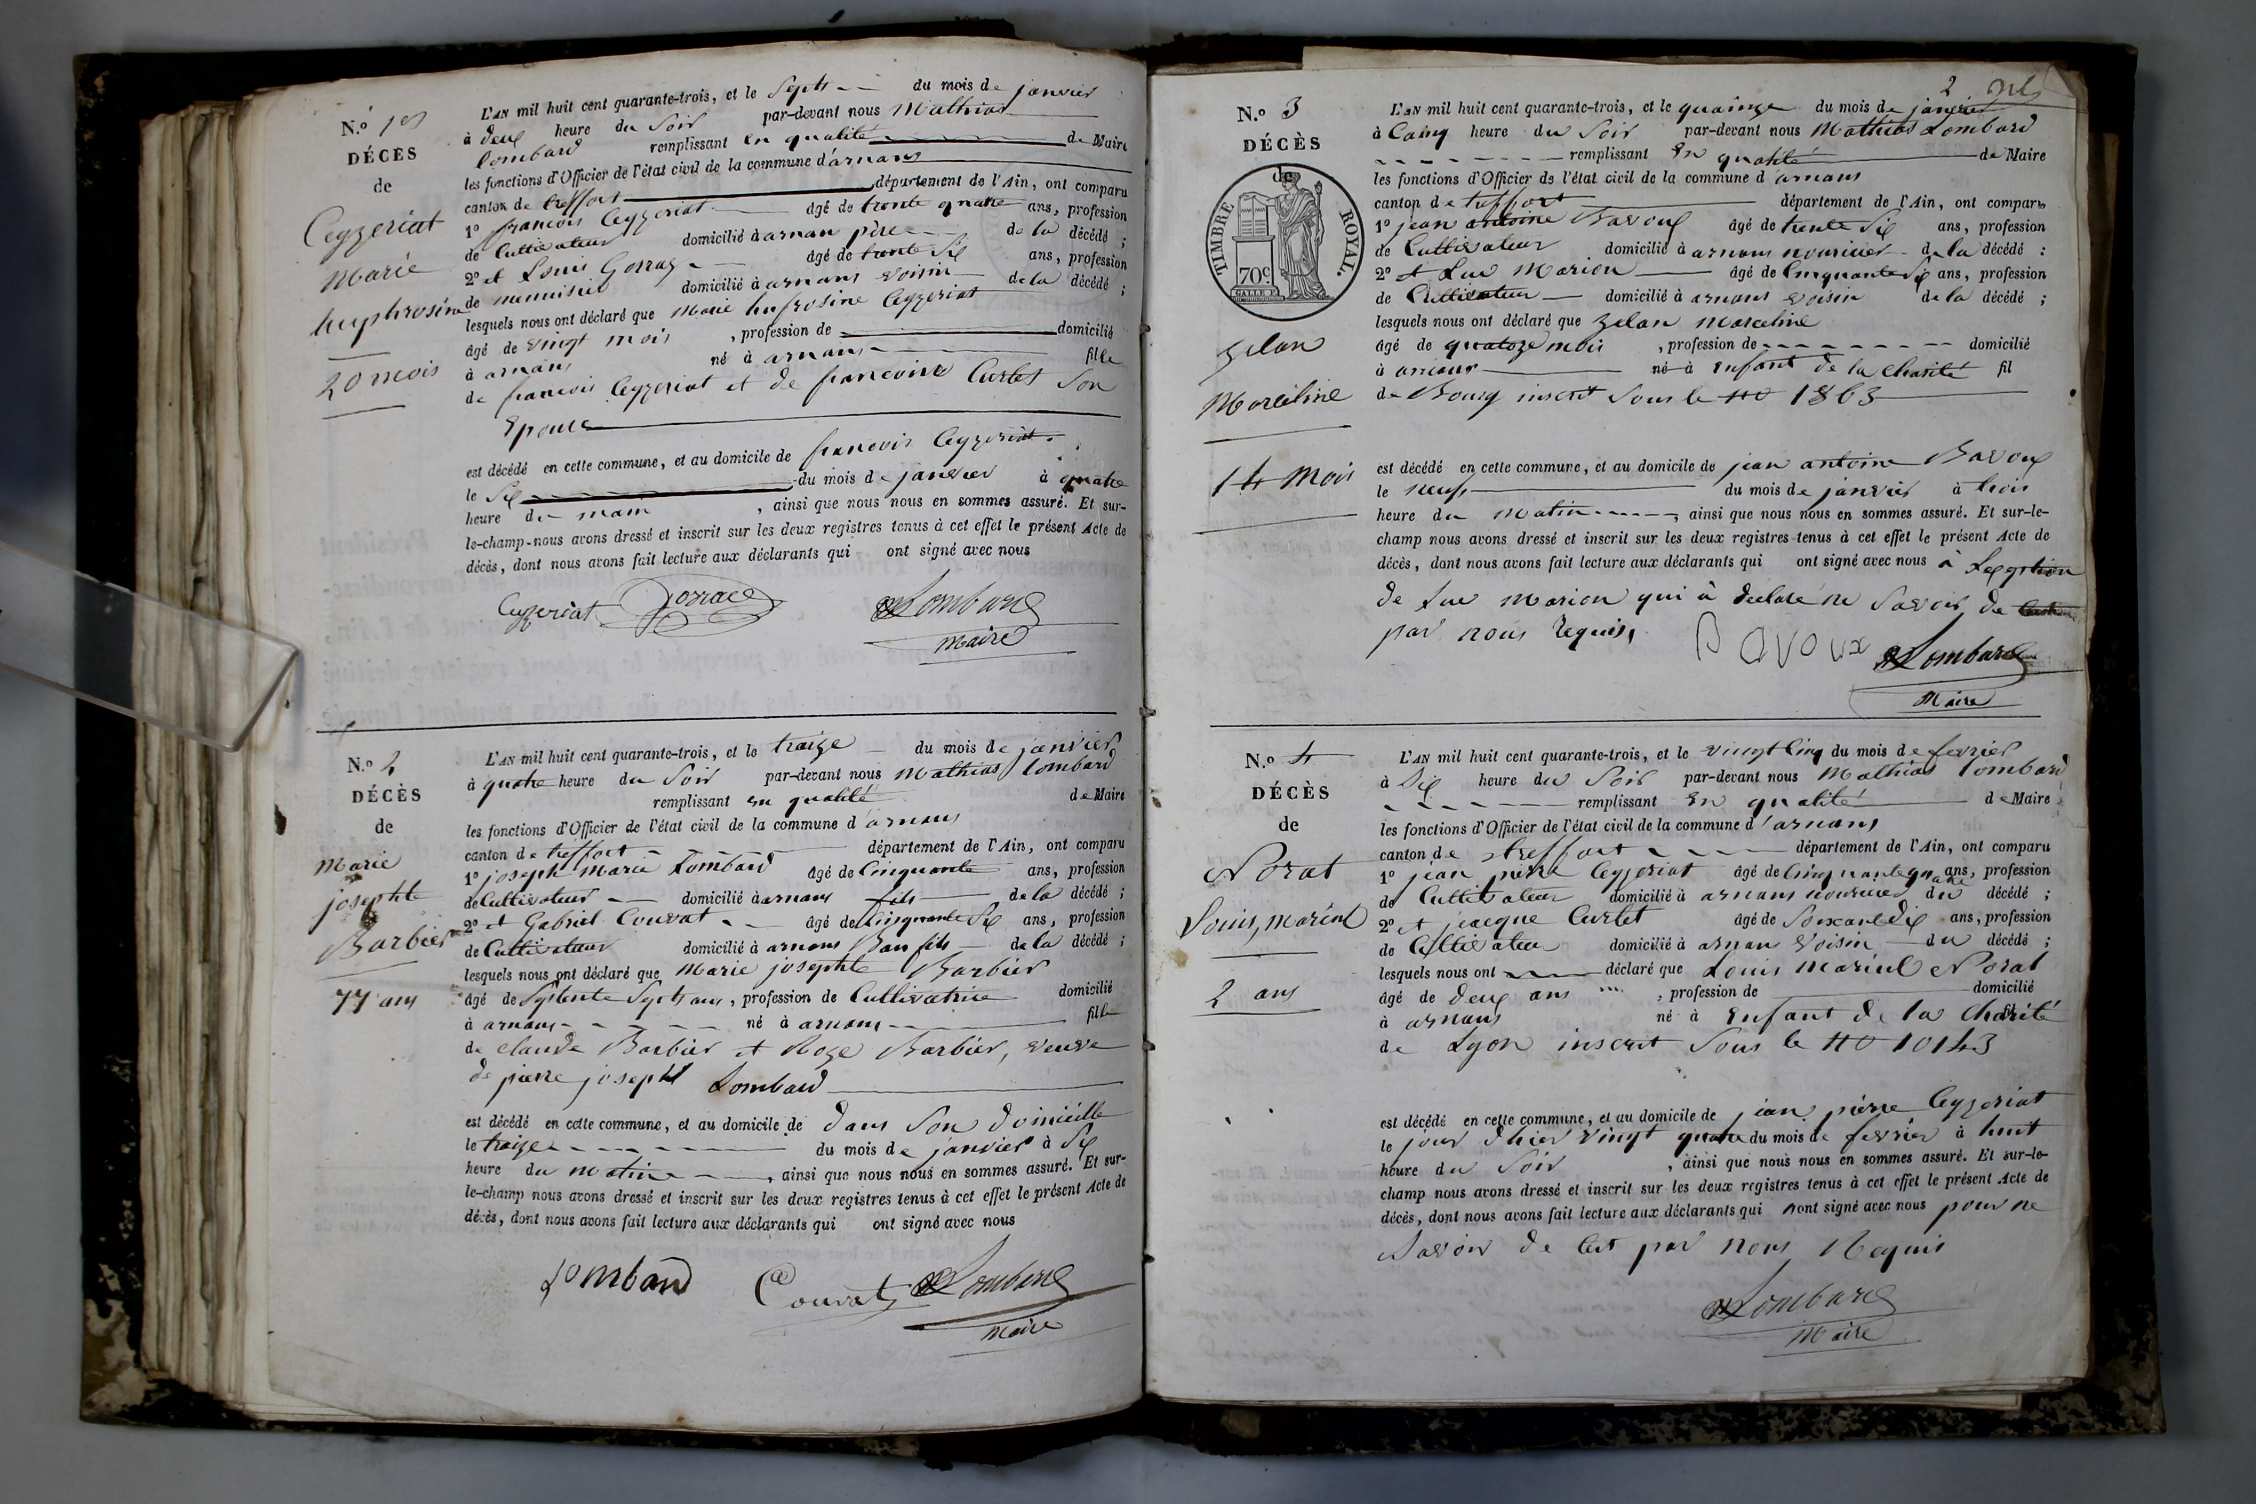 N.o 1er
DÉCÈS
de
Ceyzeriat
Marie
huphrosine
20 mois
L'AN mil huit cent quarante-trois, et le Sept du mois de janvier
à deux heure du Soir par-devant nous Mathias
Lombard remplissant en qualité de Maire
les fonctions d'Officier de l'état civil de la commune d'arnans
canton de treffort département de l'Ain, ont comparu
1o francois Ceyzeriat âgé de trente quatre ans, profession
de Cultivateur domicilié à arnan père de la décédé ;
2o et Louis Gorraz âgé de trente Six ans, profession
de menuisier domicilié à arnans voisin de la décédé ;
lesquels nous ont déclaré que Marie hufrosine Ceyzeriat
âgé de vingt mois , profession de domicilié
à arnans né à arnans fille
de francois Ceyzeriat et de francoise Curtet Son
Epouse
est décédé en cette commune, et au domicile de francois Ceyzeriat
le Six du mois de janvier à quatre
heure du matin , ainsi que nous nous en sommes assuré. Et sur-
le-champ nous avons dressé et inscrit sur les deux registres tenus à cet effet le présent Acte de
décès, dont nous avons fait lecture aux déclarants qui ont signé avec nous
Ceyzeriat Gorraz Lombard
Maire
N.o 2
DÉCÈS
de
Marie
josephte
Barbier
77 ans
L'AN mil huit cent quarante-trois, et le traize du mois de janvier
à quatre heure du Soir par-devant nous Mathias Lombard
remplissant en qualité de Maire
les fonctions d'Officier de l'état civil de la commune d arnans
canton de treffort département de l'Ain, ont comparu
1o joseph Marie Lombard âgé de Cinquante ans, profession
de Cultivateur domicilié à arnans fils de la décédé ;
2o et Gabriel Couvat âgé de Cinquante Six ans, profession
de Cultivateur domicilié à arnans Bau fils de la décédé ;
lesquels nous ont déclaré que Marie josephte Barbier
âgé de Septente Sept ans , profession de Cultivatrice domicilié
à arnans né à arnans fille
de claude Barbier et Roze Barbier, veuve
de pierre joseph Lombard
est décédé en cette commune, et au domicile de dans Son domicille
le traize du mois de janvier à Six
heure du Matin , ainsi que nous nous en sommes assuré. Et sur-
le-champ nous avons dressé et inscrit sur les deux registres tenus à cet effet le présent Acte de
décès, dont nous avons fait lecture aux déclarants qui ont signé avec nous
Lombard Couvat Lombard
Maire
2
N.o 3
DÉCÈS
de
TIMBRE ROYAL.
70c
Zelan
Marceline
14 mois
L'AN mil huit cent quarante-trois, et le quainze du mois de janvier
à Cainq heure du Soir par-devant nous Mathias Lombard
remplissant En qualité de Maire
les fonctions d'Officier de l'état civil de la commune d'arnans
canton de treffort département de l'Ain, ont comparu
1o jean antoine Bavoux âgé de trente Six ans, profession
de Cultivateur domicilié à arnans nouricier de la décédé :
2o et Luc Marion âgé de Cinquante Six ans, profession
de Cultivateur domicilié à arnans voisin de la décédé ;
lesquels nous ont déclaré que Zelan Marceline
âgé de quatoze mois , profession de domicilié
à arnans né à Enfant de la Charité fil
de Bourg inscrit Sous le No 1863
est décédé en cette commune, et au domicile de jean antoine Bavoux
le neuf du mois de janvier à trois
heure du Matin , ainsi que nous nous en sommes assuré. Et sur-le-
champ nous avons dressé et inscrit sur les deux registres tenus à cet effet le présent Acte de
décès, dont nous avons fait lecture aux déclarants qui ont signé avec nous à
de Luc Marion qui à declaré ne Savoir de
par nous Requis, Bavoux Lombard
Maire
N.o 4
DÉCÈS
de
Norat
Louis, Marint
2 ans
L'AN mil huit cent quarante-trois, et le vingt Cinq du mois de fevrier
à Six heure du Soir par-devant nous Mathias Lombard
remplissant En qualité de Maire
les fonctions d'Officier de l'état civil de la commune d'arnans
canton de treffort département de l'Ain, ont comparu
1o jean pierre Ceyzeriat âgé de Cinquante quatre ans, profession
de Cultivateur domicilié à arnans nouricier du décédé ;
2o et jacque Curtet âgé de Soixante dix ans, profession
de Cultivateur domicilié à arnan voisin du décédé ;
lesquels nous ont déclaré que Louis Marint Norat
âgé de deux ans , profession de domicilié
à arnans né à Enfant de la Charité
de Lyon inscrit Sous le No 10143
est décédé en cette commune, et au domicile de jean pierre Ceyzeriat
le jour d'hier vingt quatre du mois de fevrier à huit
heure du Soir , ainsi que nous nous en sommes assuré. Et sur-le-
champ nous avons dressé et inscrit sur les deux registres tenus à cet effet le présent Acte de
décès, dont nous avons fait lecture aux déclarants qui nont signé avec nous pour ne
Savoir de Cet par Nous Requis
Lombard
Maire